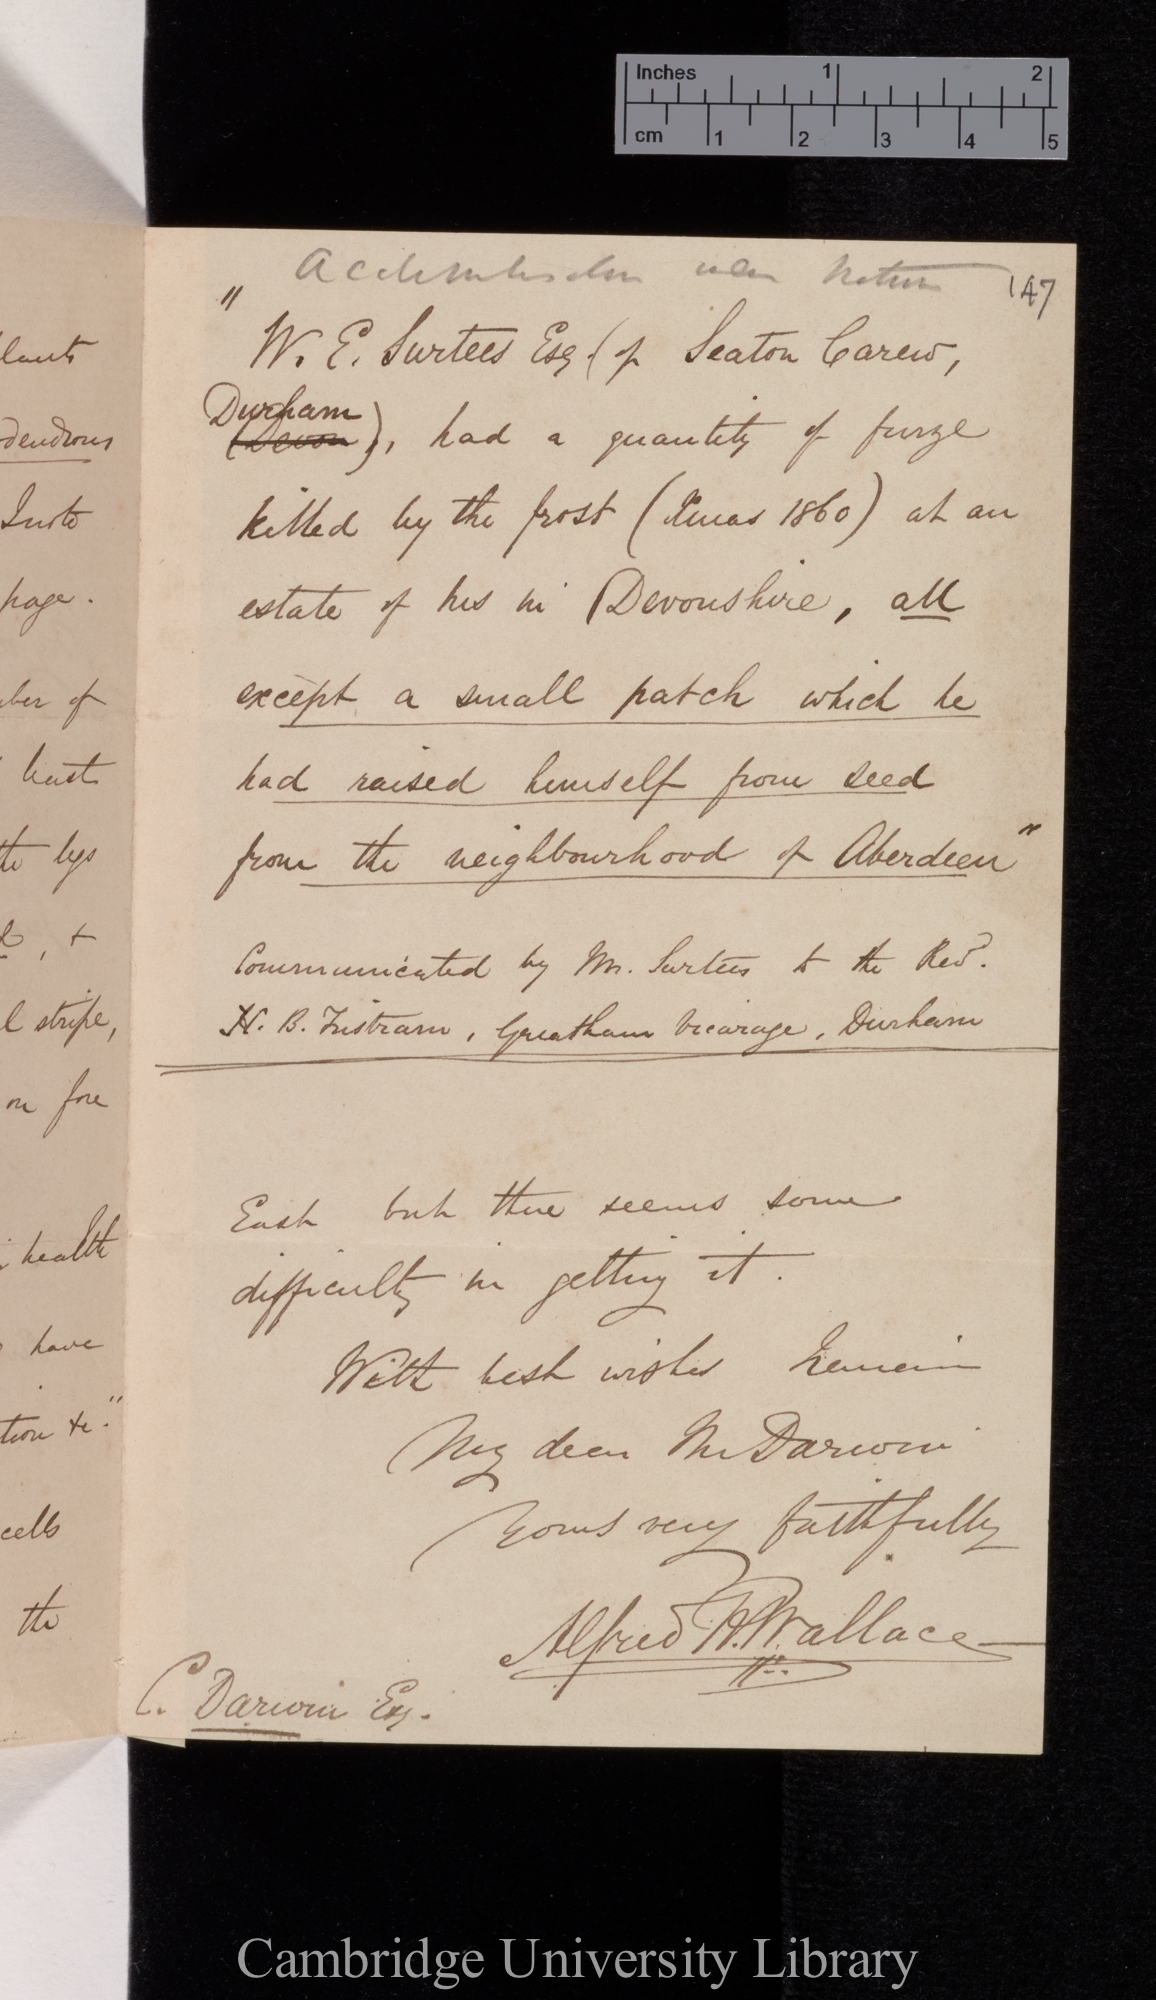 Inches 1 2
cm 1 2 3 4 5
Acclimatisation under Nature
147
"W. E. Surtees Esq (of Seaton Carew,
Durham
(Devon), had a quantity of furze
killed by the frost (Xmas 1860) at an
estate of his in Devonshire, all
except a small patch which he
had raised himself from seed
from the neighbourhood of Aberdeen"
Communicated by Mr. Surtees to the Revd.
H. B. Tristram, Greatham Vicarage, Durham
East but there seems some
difficulty in getting it.
With best wishes I remain
My dear Mr Darwin
Yours very faithfully
Alfred R. Wallace
C. Darwin Esq.
lants
dendrons
page.
ber of
the legs
l stripe,
on fore
health
have
tion &c."
cells
the
Cambridge University Library